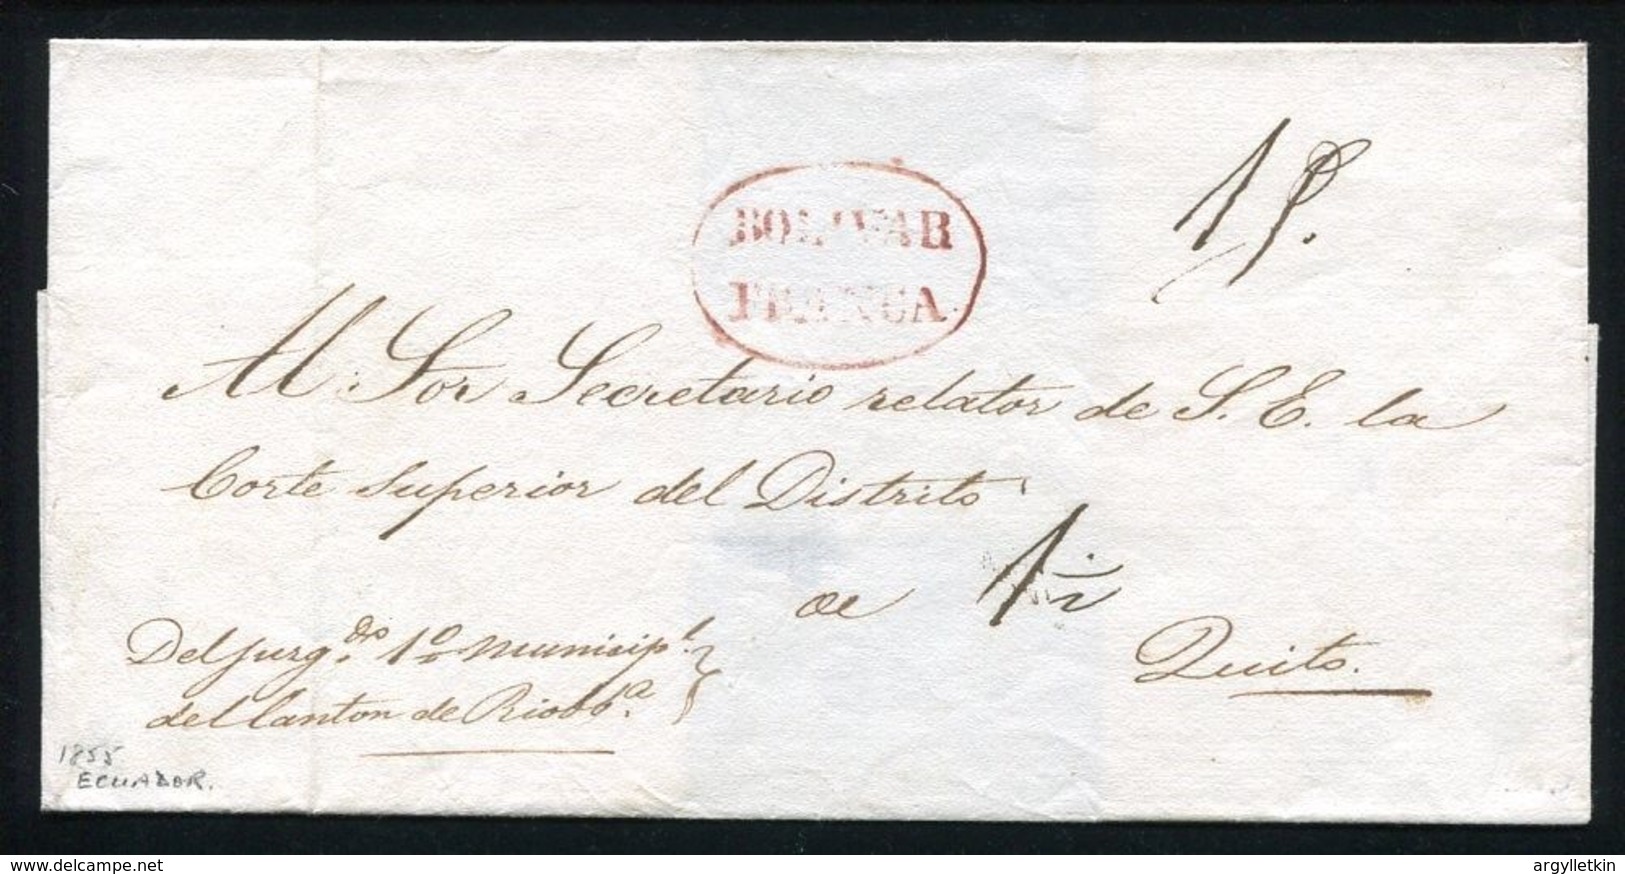 1 p.
BOLIVAR
FRANCA.
Al Sor Secretario relator de S. E. la
Corte Superior del Distrito
de 1 1/2
Deljuzg.do 1º municip.l
del Canton de Riobb.a
Quito.
1855
ECUADOR.
www.delcampe.net
argylletkin